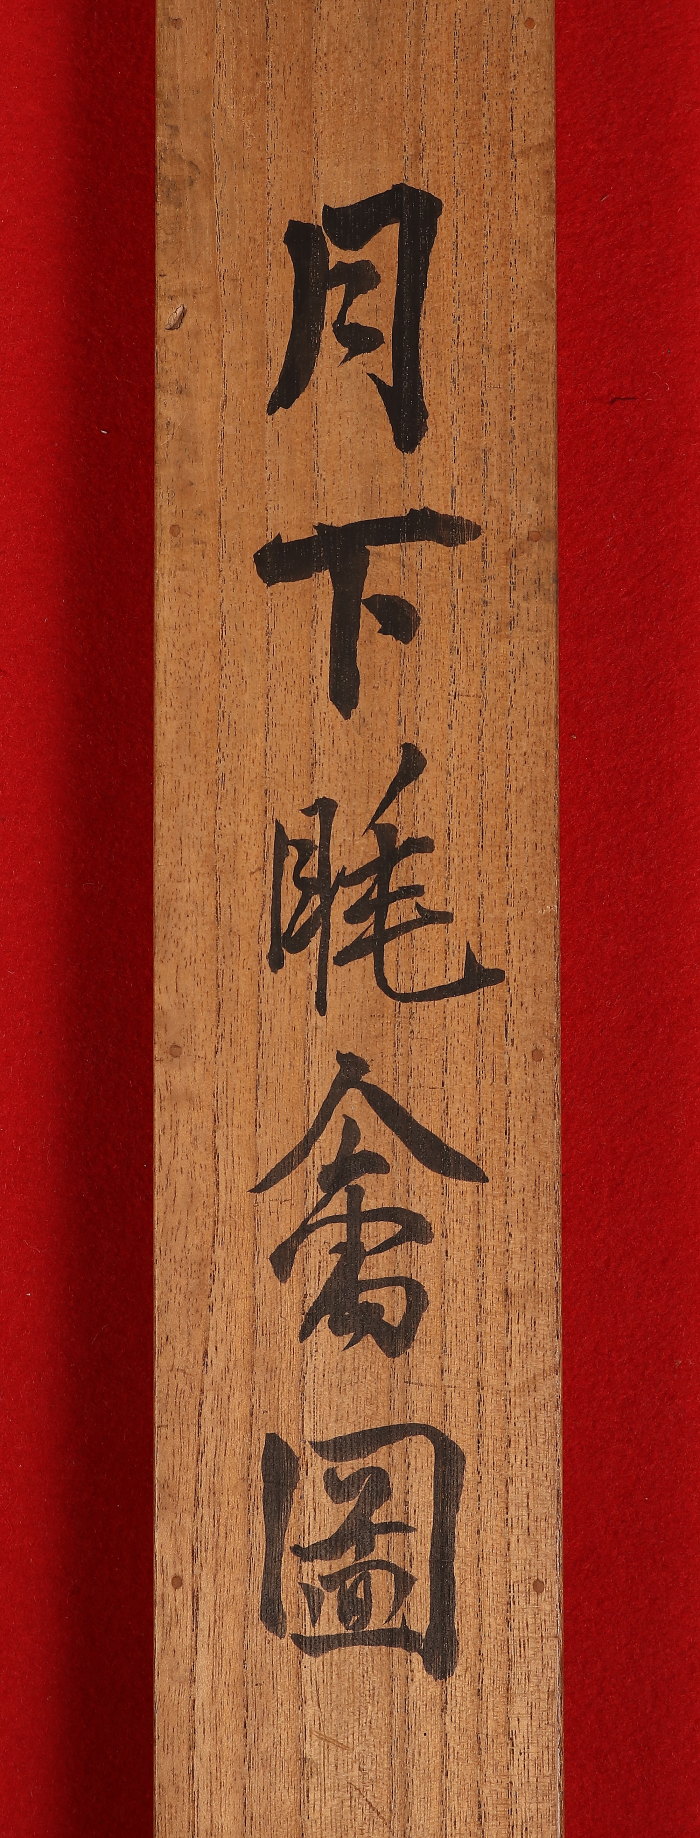 月下眠禽圖